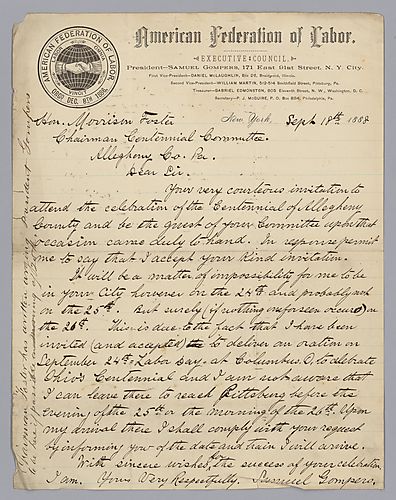 American Federation of Labor.
EXECUTIVE COUNCIL.
President—SAMUEL GOMPERS, 171 East 91st Street. N. Y. City.
First Vice-President—DANIEL McLAUGHLIN, Box 25, Braidwood, Illinois.
Second Vice-President—WILLIAM MARTIN, 512-514 Smithfield Street, Pittsburg, Pa.
Treasurer—GABRIEL EDMONSTON, 805 Eleventh Street, N. W., Washington, D. C.
Secretary—P. J. McGUIRE, P. O. Box 884, Philadelphia, Pa.
AMERICAN FEDERATION OF LABOR
LABOR OMNIA VINCIT
ORG'D. DEC. 8TH 1886.
New York, Sept 18th 1888
Hon. Morrison Foster
Chairman Centennial Committee.
Allegheny Co. Pa.
Dear Sir.
Your very courteous invitation to
attend the celebration of the Centennial of Allegheny
County and be the guest of your Committee upon that
occasion came duly to hand. In response permit
me to say that I accept your kind invitation.
It will be a matter of impossibility for me to be
in your City however on the 24th and probably not
on the 25th. But surely (if nothing unforseen occurs) on
the 26th. This is due to the fact that I have been
invited (and accepted) to deliver an oration on
September 24th Labor Day at Columbus, O, to celebrate
Ohio's Centennial and I am not aware that
I can leave there to reach Pittsburg before the
evening of the 25th or the morning of the 26th. Upon
my arrival there I shall comply with your request
by informing you of the date and train I will arrive.
With sincere wishes for the success of your celebration
I am. Yours Very Respectfully. Samuel Gompers.